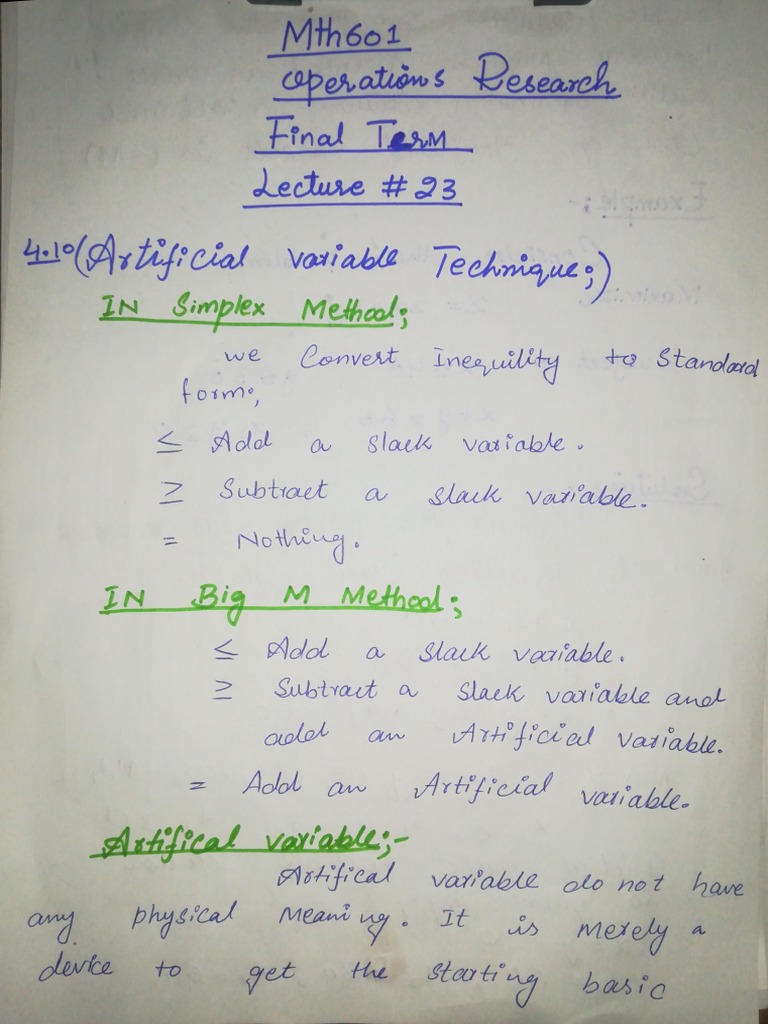 Mth601
Operations Research
Final Term
Lecture # 23
4.10(Artificial variable Technique;)
IN Simplex Method;
we Convert Inequility to Standard
form;
≤ Add a slack variable.
≥ Subtract a slack variable.
= Nothing.
IN Big M Method;
≤ Add a slack variable.
≥ Subtract a slack variable and
add an Artificial variable.
= Add an Artificial variable.
Artifical variable;-
Artifical variable do not have
any physical Meaning. It is merely a
device to get the starting basic